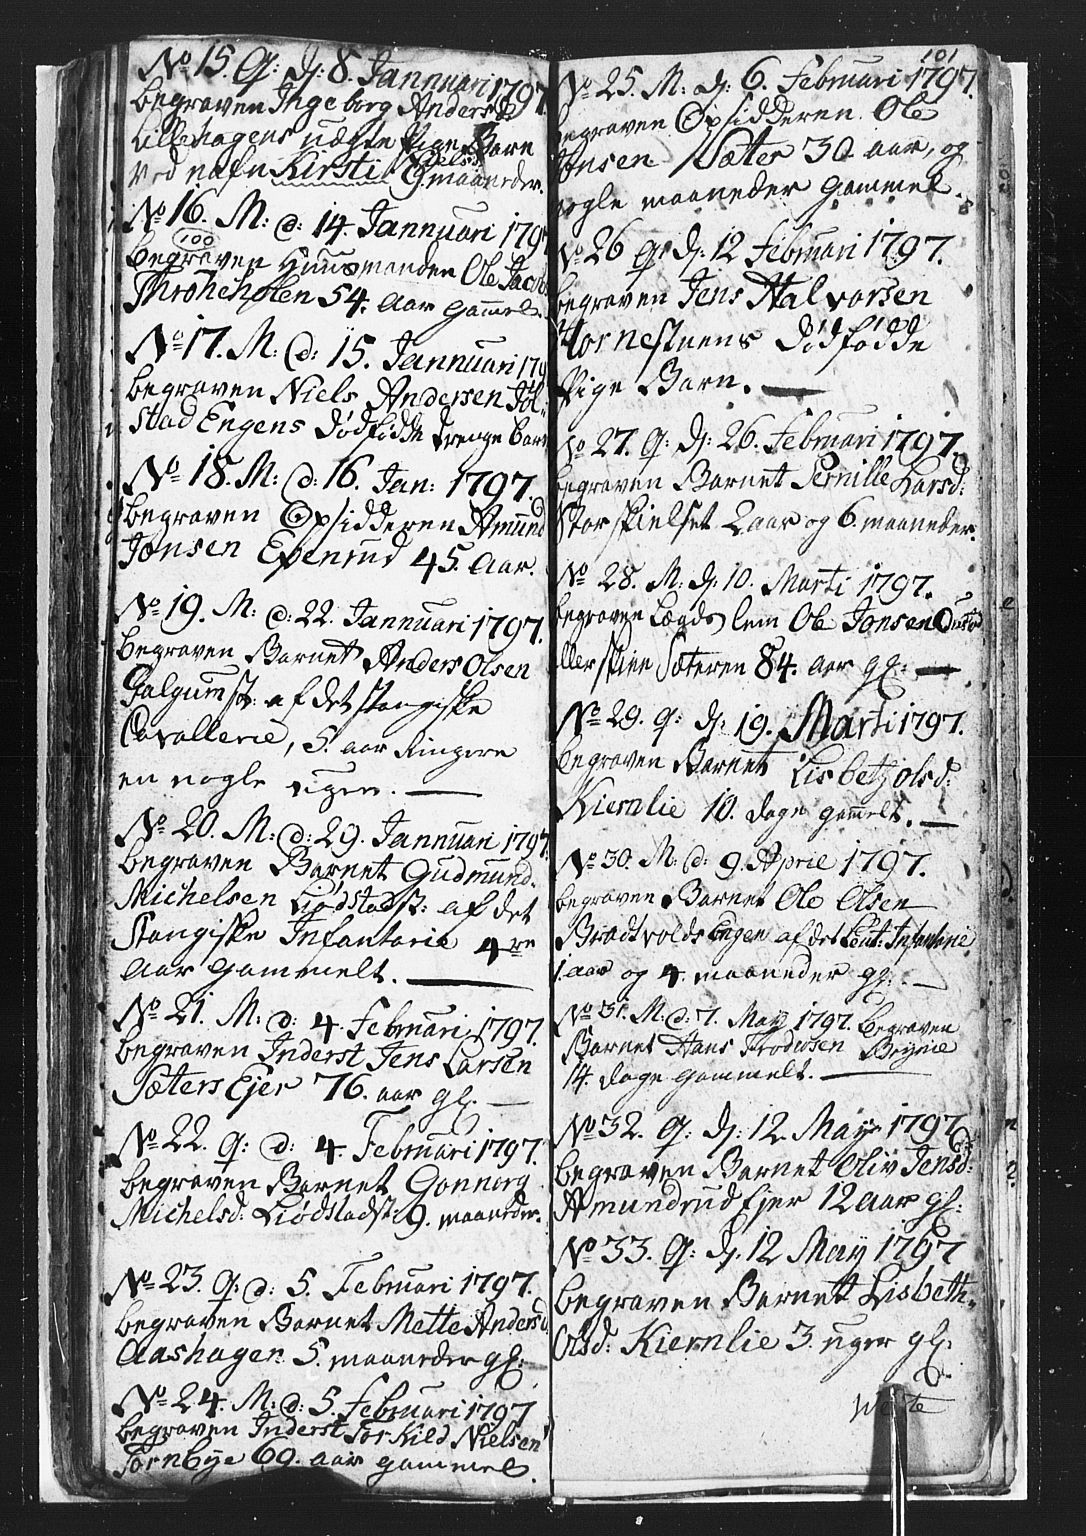 No 15. Q: d: 8. Jannuari 1797.
begraven Ingeborg Andersd:
Lillehagens uægte Pige Barn
ved nafn Kirsti Nielsd: 9 maaneder.
No 16. M: d: 14. Jannuari 1797
100
begraven Huusmanden Ole Jacobs
Throheholen 54. Aar gammel.
No 17. M: d: 15. Jannuari 179
begraven Niels Andersen Jøl-
stad Engens Dødfødde Drenge barn
No 18. M: d: 16. Jan: 1797.
begraven Opsidderen Amund
Jonsen Evenrud 45. Aar.
No 19. M: d: 22. Jannuari 1797.
begraven Barnet Anders Olsen
Galgumst: af det Stangiske
Cavallerie, 5. aar Ringere
en nogle uger.
No 20. M: d: 29. Jannuari 1797.
begraven Barnet Gudmund
Michelsen Liødstadst: af det
Stangiske Infanterie 4re
Aar gammelt.
No 21. M: d: 4. Februari 1797.
begraven Inderst Jens Larsen
Sæters Ejer 76. aar gl.
No 22. Q: d: 4. Februari 1797.
begraven Barnet Gonnorg
Michelsd: Liødstadst: 9. maaneder.
No 23. Q: d: 5. Februari 1797.
begraven Barnet Mette Andersd
Aashagen 5. maaneder gl:
No 24. M: d: 5. Februari 1797
begraven Inderst Torkild Nielsen
Tornbye 69. aar gammel.
101
No 25. M: d: 6. Februari 1797.
begraven Opsidderen Ole
Jonsen Sæter 30 aar, og
nogle maaneder gammel.
No 26 Q: d: 12 Februari 1797.
begraven Jens Halvorsen
Hornestuens Dødfødde
Pige Barn.
No 27. Q: d: 26. Februari 1797.
begraven Barnet Pernille Larsd:
Storskielset 2 aar og 6. maaneder.
No 28. M: d: 10. Marti 1797.
begraven Lægds lem Ole Jonsen
Sæteren 84. aar gl:
No 29. Q: d: 19. Marti 1797.
begraven Barnet Lisbeth Olsd:
Kiernlie 10. dage gamelt.
No 30. M: d: 9. Aprile 1797.
begraven Barnet Ole Olsen
Bradtvolds Engen af det Leut: Infanterie
1. aar og 4. maaneder gl:
No 31. M: d: 7. May 1797. begraven
Barnet Hans Frodiosen Brynie
14. dage gammelt.
No 32. Q: d: 12. May 1797.
begraven Barnet Oliv Jensd:
Amundrud Ejer 12 aar gl:
No 33. Q: d: 12 May 1797
begraven Barnet Lisbeth
Olsd: Kiernlie 3. uger gl.